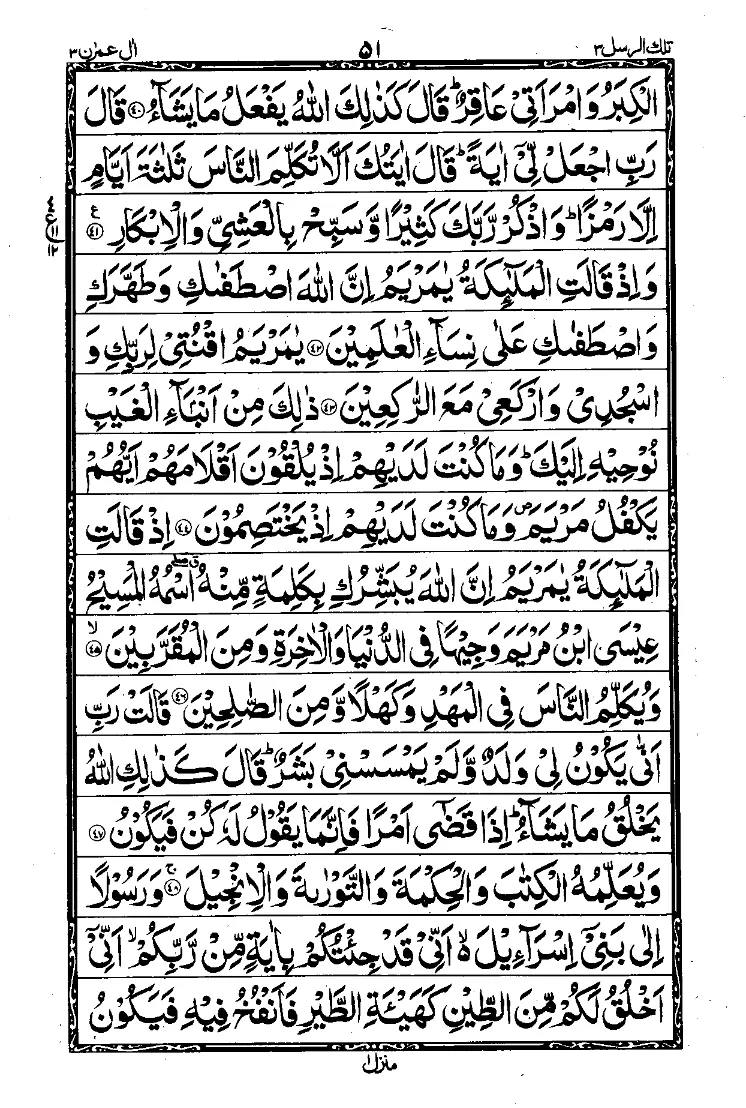 تلك الرسل ٣
٥١
اٰل عمرٰن ٣
الْكِبَرُ وَامْرَاَتِیْ عَاقِرٌ ؕ قَالَ كَذٰلِكَ اللّٰهُ یَفْعَلُ مَا یَشَآءُ ﴿۴۰﴾ قَالَ
رَبِّ اجْعَلْ لِّیْۤ اٰیَةً ؕ قَالَ اٰیَتُكَ اَلَّا تُكَلِّمَ النَّاسَ ثَلٰثَةَ اَیَّامٍ
اِلَّا رَمْزًا ؕ وَاذْكُرْ رَّبَّكَ كَثِیْرًا وَّسَبِّحْ بِالْعَشِیِّ وَالْاِبْكَارِ ﴿۴۱﴾ ع
۱۱
۱۲
وَاِذْ قَالَتِ الْمَلٰٓىِٕكَةُ یٰمَرْیَمُ اِنَّ اللّٰهَ اصْطَفٰىكِ وَطَهَّرَكِ
وَاصْطَفٰىكِ عَلٰی نِسَآءِ الْعٰلَمِیْنَ ﴿۴۲﴾ یٰمَرْیَمُ اقْنُتِیْ لِرَبِّكِ وَ
اسْجُدِیْ وَارْكَعِیْ مَعَ الرّٰكِعِیْنَ ﴿۴۳﴾ ذٰلِكَ مِنْ اَنْۢبَآءِ الْغَیْبِ
نُوْحِیْهِ اِلَیْكَ ؕ وَمَا كُنْتَ لَدَیْهِمْ اِذْ یُلْقُوْنَ اَقْلَامَهُمْ اَیُّهُمْ
یَكْفُلُ مَرْیَمَ ۪ وَمَا كُنْتَ لَدَیْهِمْ اِذْ یَخْتَصِمُوْنَ ﴿۴۴﴾ اِذْ قَالَتِ
الْمَلٰٓىِٕكَةُ یٰمَرْیَمُ اِنَّ اللّٰهَ یُبَشِّرُكِ بِكَلِمَةٍ مِّنْهُ ۖۗ اسْمُهُ الْمَسِیْحُ
عِیْسَی ابْنُ مَرْیَمَ وَجِیْهًا فِی الدُّنْیَا وَالْاٰخِرَةِ وَمِنَ الْمُقَرَّبِیْنَ ﴿۴۵﴾ ۙ
وَیُكَلِّمُ النَّاسَ فِی الْمَهْدِ وَكَهْلًا وَّمِنَ الصّٰلِحِیْنَ ﴿۴۶﴾ قَالَتْ رَبِّ
اَنّٰی یَكُوْنُ لِیْ وَلَدٌ وَّلَمْ یَمْسَسْنِیْ بَشَرٌ ؕ قَالَ كَذٰلِكِ اللّٰهُ
یَخْلُقُ مَا یَشَآءُ ؕ اِذَا قَضٰۤی اَمْرًا فَاِنَّمَا یَقُوْلُ لَهٗ كُنْ فَیَكُوْنُ ﴿۴۷﴾
وَیُعَلِّمُهُ الْكِتٰبَ وَالْحِكْمَةَ وَالتَّوْرٰىةَ وَالْاِنْجِیْلَ ﴿۴۸﴾ ۚ وَرَسُوْلًا
اِلٰی بَنِیْۤ اِسْرَآءِیْلَ ۙ۬ اَنِّیْ قَدْ جِئْتُكُمْ بِاٰیَةٍ مِّنْ رَّبِّكُمْ ۙ اَنِّیْۤ
اَخْلُقُ لَكُمْ مِّنَ الطِّیْنِ كَهَیْـَٔةِ الطَّیْرِ فَاَنْفُخُ فِیْهِ فَیَكُوْنُ
منزل ۱